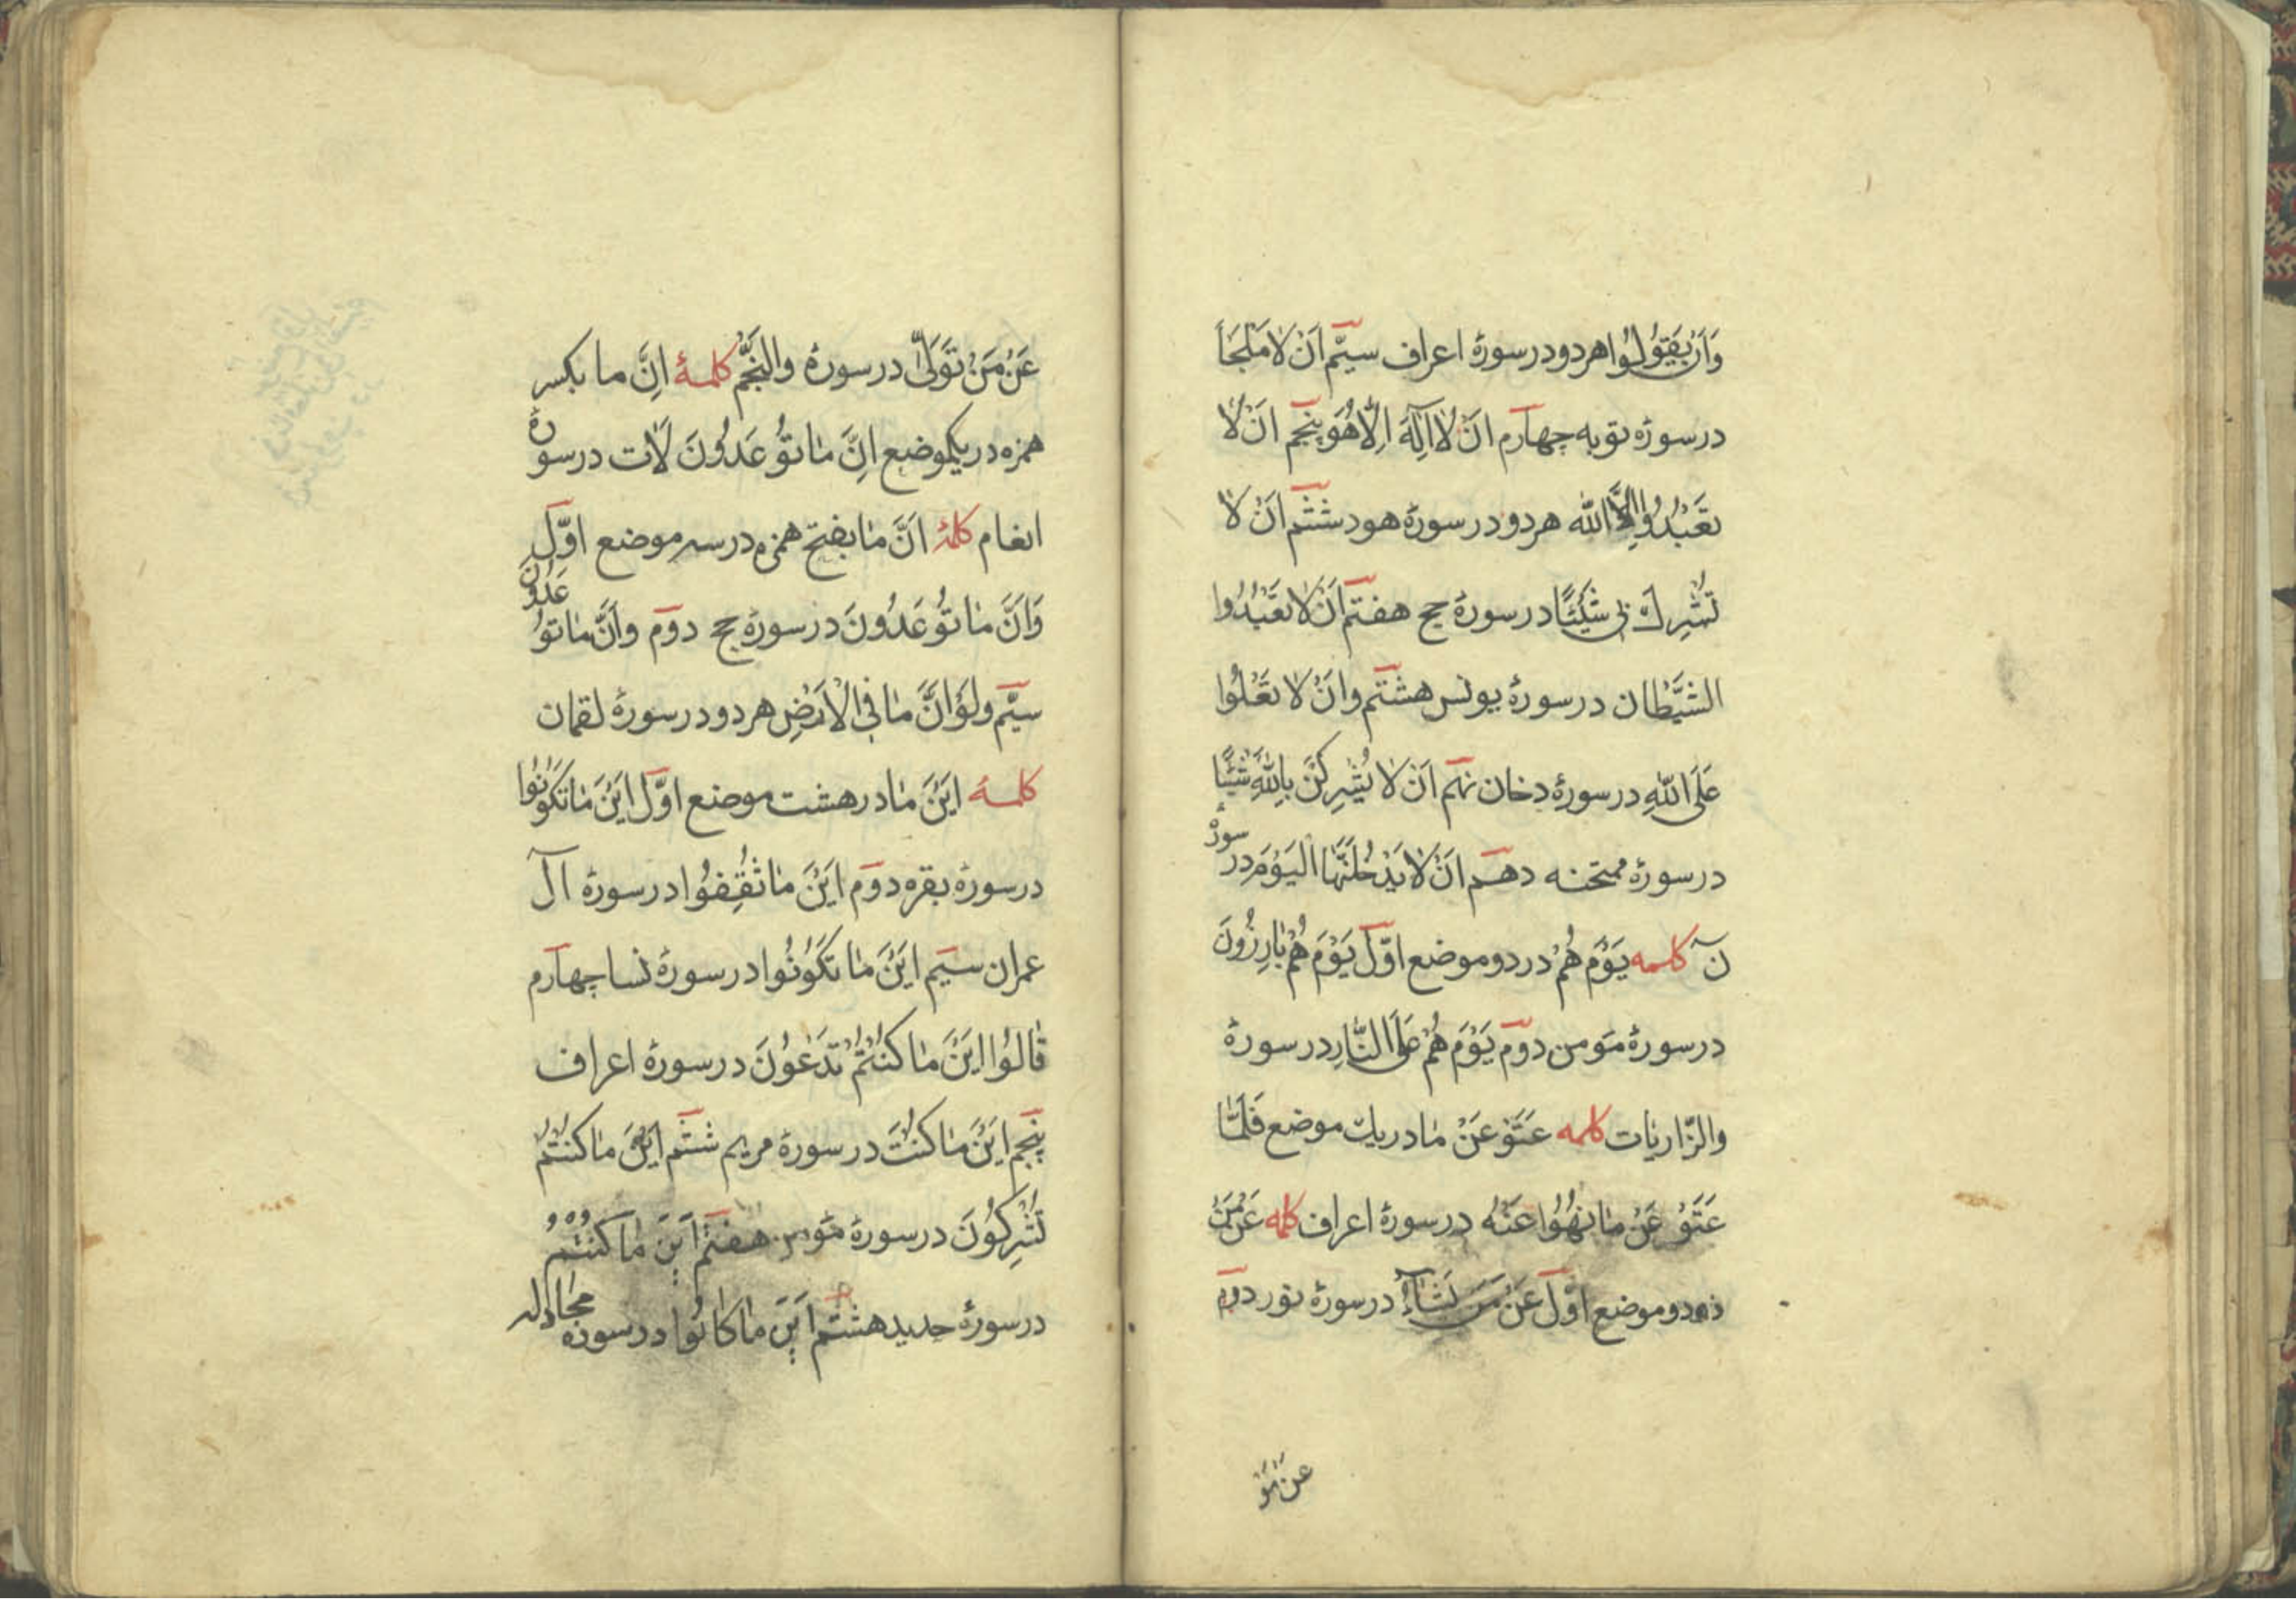 وَاَنْ یَقُولُوا هر دو در سورهٔ اعراف سیّم اَنْ لا مَلْجَأَ
در سورهٔ توبه چهارم انْ لا اِلٰهَ اِلّا هُوَ پنجم انْ لا
تَعْبُدُوا اِلَّا الله هر دو در سورهٔ هود ششم اَنْ لا
تُشْرِكْ بی شَیْئًا در سورهٔ حج هفتم اَنْ لا تَعْبُدُوا
الشَّیْطان در سورهٔ یونس هشتم وانْ لا تَعْلُوا
عَلَی اللّٰهِ در سورهٔ دخان نهم اَنْ لا یُشْرِكْنَ بِاللّٰهِ شَیْئًا
در سورهٔ ممتحنه دهم اَنْ لا یَدْخُلَنَّهَا الْیَوْمَ در سورهٔ
نٓ کلمه یَوْمَ هُمْ در دو موضع اوّل یَوْمَ هُمْ بارِزُونَ
در سورهٔ مؤمن دوم یَوْمَ هُمْ عَلَی النَّارِ در سورهٔ
والزّاریات کلمه عَتَوْ عَنْ ما در یك موضع فَلَمَّا
عَتَوْ عَنْ ما نُهُوا عَنْهُ در سورهٔ اعراف کلمه عَنْ مَنْ
در دو موضع اوّل عَنْ مَنْ یَشآءُ در سورهٔ نور دوم
عَنْ مَنْ تَوَلّٰی در سورهٔ والنَّجْم کلمهٔ اِنَّ ما بکسر
همزه در یکموضع اِنَّ ما تُوعَدُونَ لَاٰت در سورهٔ
انعام کلمهٔ اَنَّ ما بفتح همزه در سه موضع اوّل
وَاَنَّ ما تُوعَدُونَ در سورهٔ حج دوم وانَّ ما توعَدُونَ
سیّم ولَوْ اَنَّ ما فِی الْاَرْضِ هر دو در سورهٔ لقمان
کلمهٔ اَیْنَ ما در هشت موضع اوّل اَیْنَ ما تَکُونُوا
در سورهٔ بقره دوم اَیْنَ ما ثُقِفُوا در سورهٔ آل
عمران سیم اَیْنَ ما تَکُونُوا در سورهٔ نسا چهارم
قالُوا اَیْنَ ما کُنْتُمْ تَدْعُونَ در سورهٔ اعراف
پنجم اَیْنَ ما کُنْتَ در سورهٔ مریم ششم اَیْنَ ما کُنْتُمْ
تُشْرِکُونَ در سورهٔ مؤمن هفتم اَیْنَ ما کُنْتُمْ
در سورهٔ حدید هشتم اَیْنَ ما کانُوا در سوره مجادله
عن مَن